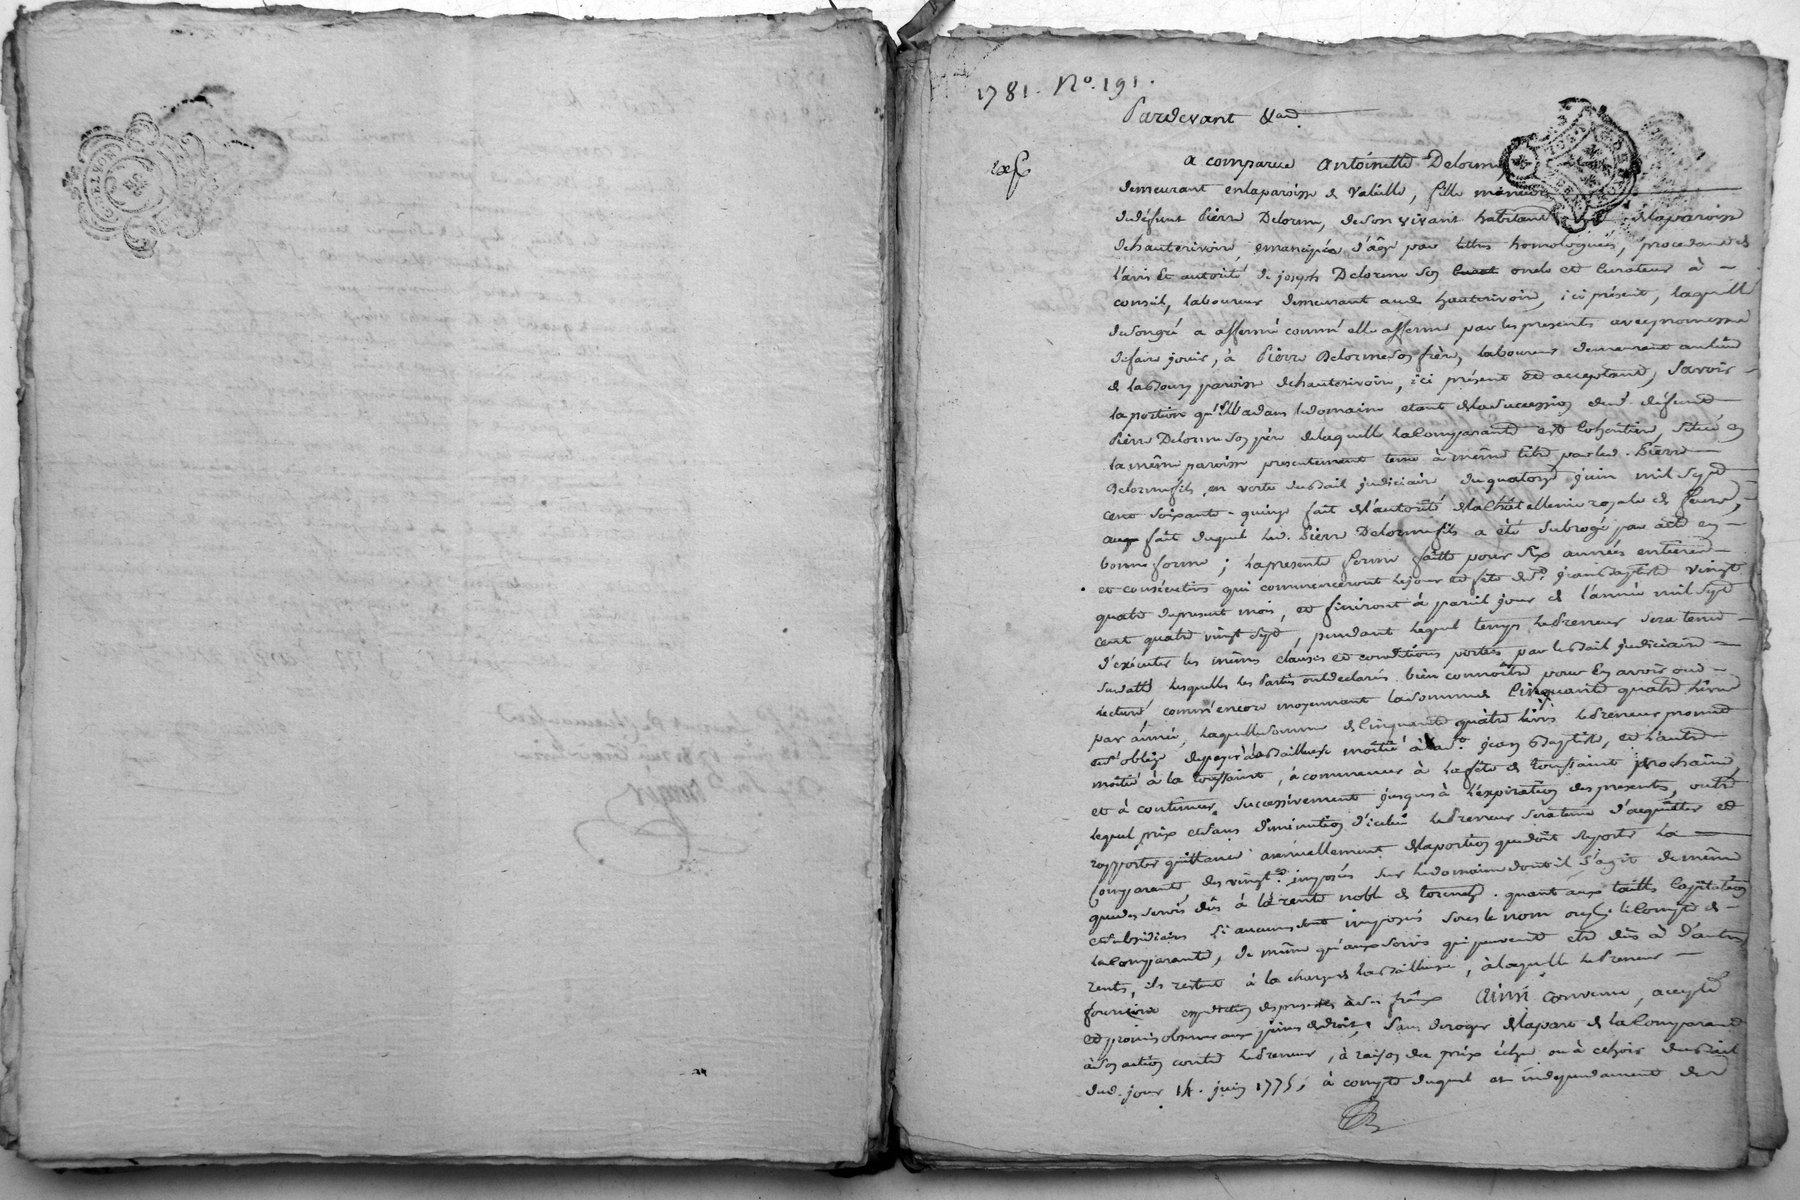 1781. N.º 191.
Pardevant &ca
exp
a comparue Antoinette Delorme
demeurant en la paroisse de Valeille, fille mineure
du défunt Pierre Delorme, de son vivant habitant de la paroisse
de hauterivoire, emancipée d'âge par lettres homologuées, procedant de
l'avis et autorité de joseph Delorme son oncle et curateur à
conseil, laboureur demeurant aud. hauterivoire, ici présent, laquelle
de son gré a affermé comme elle afferme par les presentes avec promesse
de faire jouir, à Pierre Delorme son frère, laboureur demeurant au lieu
de paroisse de hauterivoire, ici présent et acceptant, Savoir
la portion qu'elle a dans le domaine etant de la succession dud. défunt
Pierre Delorme son père de laquelle la Comparante est Cohéritière, situé en
la même paroisse presentement tenu à même titre par led. Pierre
Delorme fils, en vertu du bail judiciaire du quatorze juin mil sept
cent soixante-quinze fait de l'autorité de la châtellenie royale de feurs,
au fait duquel led. Pierre Delorme fils a été subrogé par acte en
bonne forme ; la presente ferme faitte pour six années entières
et consécutives qui commenceront le jour et fête de St. jean Baptiste vingt
quatre du present mois, et finiront à pareil jour de l'année mil sept
cent quatre vingt sept, pendant lequel temps le Preneur sera tenu
d'exécuter les mêmes clauses et conditions portées par le bail judiciaire
susdatté lesquelles les Parties ont declarés bien connoître pour en avoir oui
lecture comm'encore moyennant la somme de Cinquante quatre livres
par année, laquelle somme de Cinquante quatre livres le Preneur promet
et s'oblige de payer à la Bailleuse moitié à la St. jean Baptiste, et l'autre
moitié à la toussaint, à commencer à la fête de toussaint prochaine,
et à continuer successivement jusques à l'expiration des presentes, outre
lequel prix et sans diminution d'icelui le Preneur sera tenu d'acquitter et
rapporter quittance annuellement de la portion que doit supporter la
Comparante des vingt.es imposés sur le domaine dont il s'agit de même
que des servis dûs à la rente noble de . quant aux tailles Capitation
et subsidiaires si aucunes sont imposées sous le nom ou sur le Compte de
la Comparante, de même qu'aux servis qui peuvent etre dûs à d'autres
rentes, ils restent à la charge de la Bailleuse, à laquelle le Preneur
fournira expédition des presentes à ses frais Ainsi convenu, accepté
et promis observer aux peines de droit, sans deroger de la part de la Comparante
à son action contre le Preneur, à raison du prix échu ou à echoir du Bail
dud. jour 14. juin 1775, à compte duquel et independament de